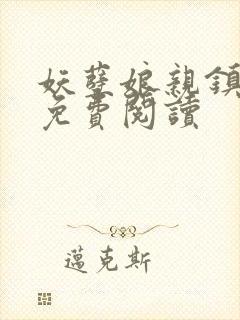 妖孽娘親鎮
免費閱讀
邁克斯